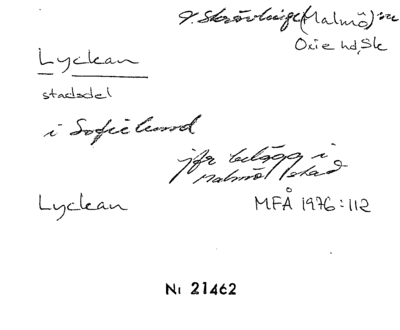 V. Skrävlinge (Malmö) sn
Oxie hd, Sk
Lyckan
stadsdel
i Sofielund
jfr belägg i
Malmö stad
Lyckan MFÅ 1976:112
Nr 21462